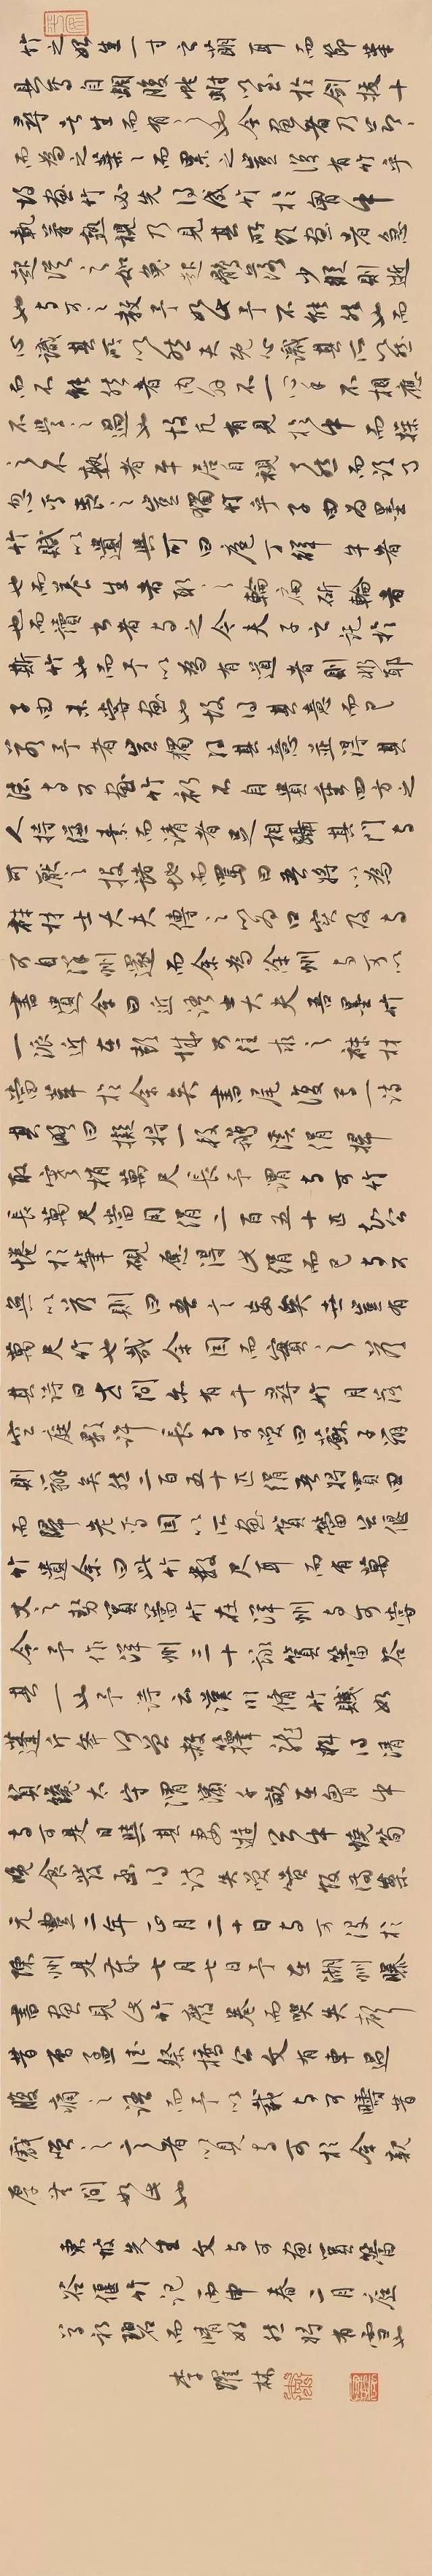 竹之始生一寸之萌耳而節葉
具焉自蜩腹蛇蚹以至於劍拔十
尋者生而有之也今畫者乃節節
而為之葉葉而累之豈復有竹乎
故畫竹必先得成竹於胸中
執筆熟視乃見其所欲畫者急
起從之如兔起鶻落少縱則逝
也與可之教予如此予不能然也而
心識其所以然夫既心識其所以然
而不能然者內外不一心手不相應
不學之過也故凡有見於中而操
之不熟者平居自視了然而臨事
忽焉喪之豈獨竹乎子由為墨
竹賦以遺與可曰庖丁解牛者
也而養生者取之輪扁斫輪者
也而讀書者與之今夫子之託於
斯竹也而予以為有道者則非耶
子由未嘗畫也故得其意而已
若予者豈獨得其意並得其
法與可畫竹初不自貴重四方之
人持縑素而請者足相躡其門與
可厭之投諸地而罵曰吾將以為
襪材士大夫傳之以為口實及與
可自洋州還而余為徐州與可以
書遺余曰近語士大夫吾墨竹
一派近在彭城可往求之襪材
當萃於余矣書尾復寫一詩
其略曰擬將一段鵝溪絹掃
取寒梢萬尺長予謂與可竹
長萬尺當用絹二百五十匹知公
倦於筆硯願得此絹而已與可
無以答則曰吾言妄矣世豈有
萬尺竹也哉余因而實之答
其詩曰世間亦有千尋竹月落
空庭影許長與可笑曰蘇子辯
則辯矣然二百五十匹絹吾將買田
而歸老焉因以所畫篔簹谷偃
竹遺余曰此竹數尺耳而有萬
丈之勢篔簹竹在洋州與可嘗
令予作洋州三十詠篔簹谷
其一也予詩云漢川脩竹賤如
蓬斤斧何曾赦籜龍料得清
貧饞太守渭濱千畝在胸中
與可是日與其妻遊谷中燒筍
晚食發函得詩失笑噴飯滿案
元豐二年正月二十日與可沒於
陳州是歲七月七日予在湖州曝
書畫見此竹廢卷而哭失聲
昔曹孟德祭橋公文有車過
腹痛之語而予亦載與可疇昔
戲笑之言者以見與可於余親
厚無間如此也
東坡先生文與可畫篔簹
谷偃竹記丙申春二月庭